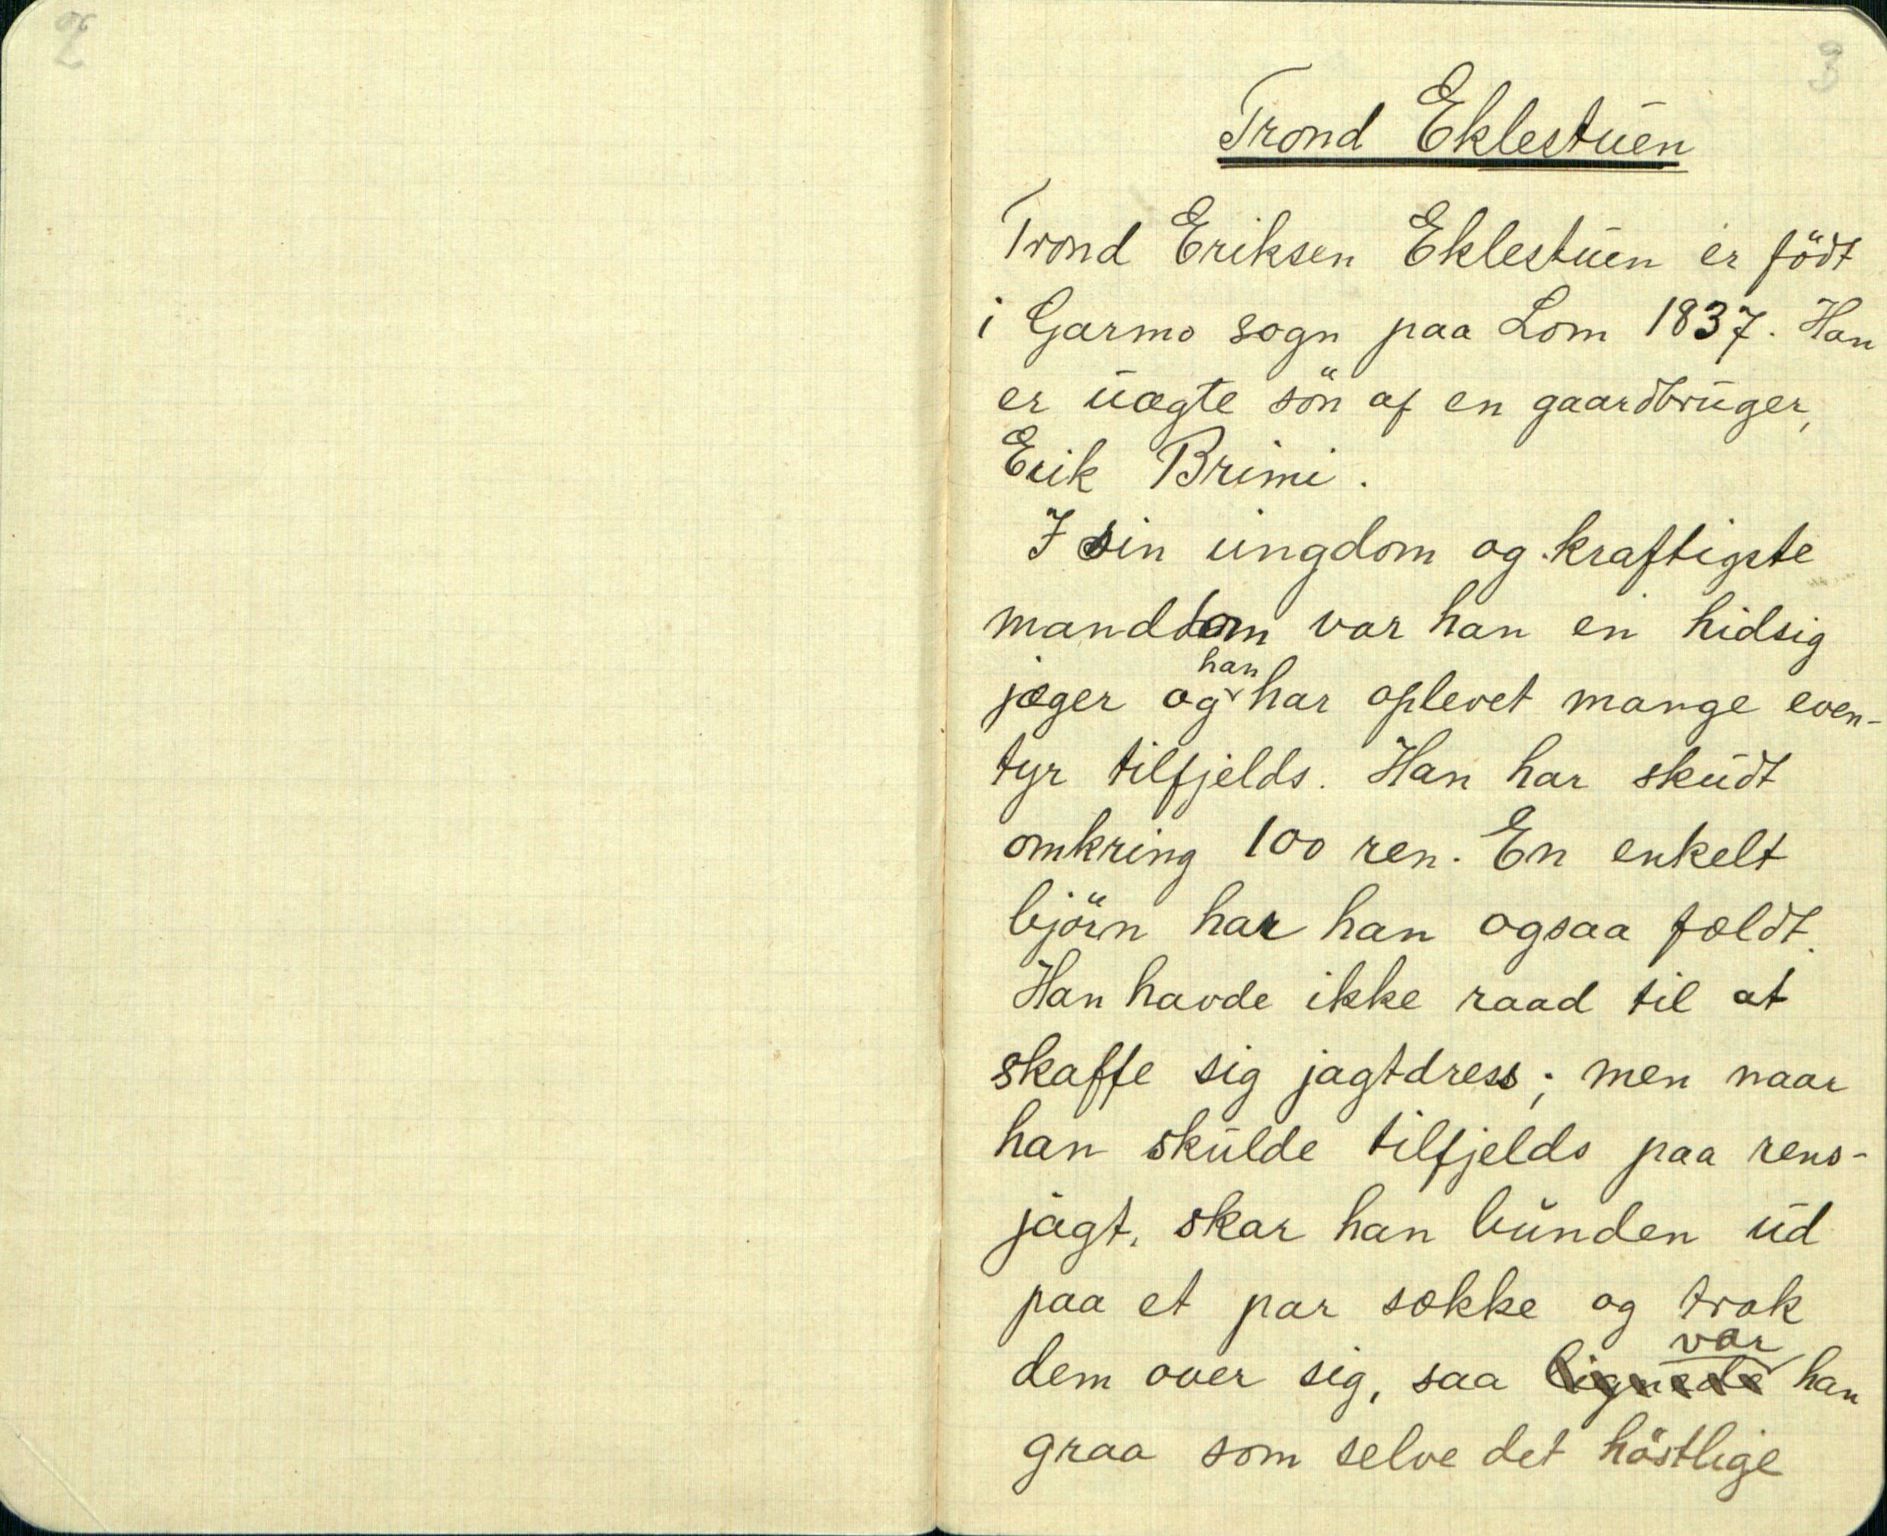 2
3
Trond Eklestuen
Trond Eriksen Eklestuen er född
i Garmo sogn paa Lom 1837. Han
er uægte sön af en gaardbruger,
Erik Brimi.
I sin ungdom og kraftigste
manddom var han en hidsig
han
jæger og har oplevet mange even-
tyr tilfjelds. Han har skudt
omkring 100 ren. En enkelt
björn har han ogsaa fældt.
Han havde ikke raad til at
skaffe sig jagtdress; men naar
han skulde tilfjelds paa rens-
jagt, skar han bunden ud
paa et par sække og trak
var
dem over sig, saa lignede han
graa som selve det höstlige